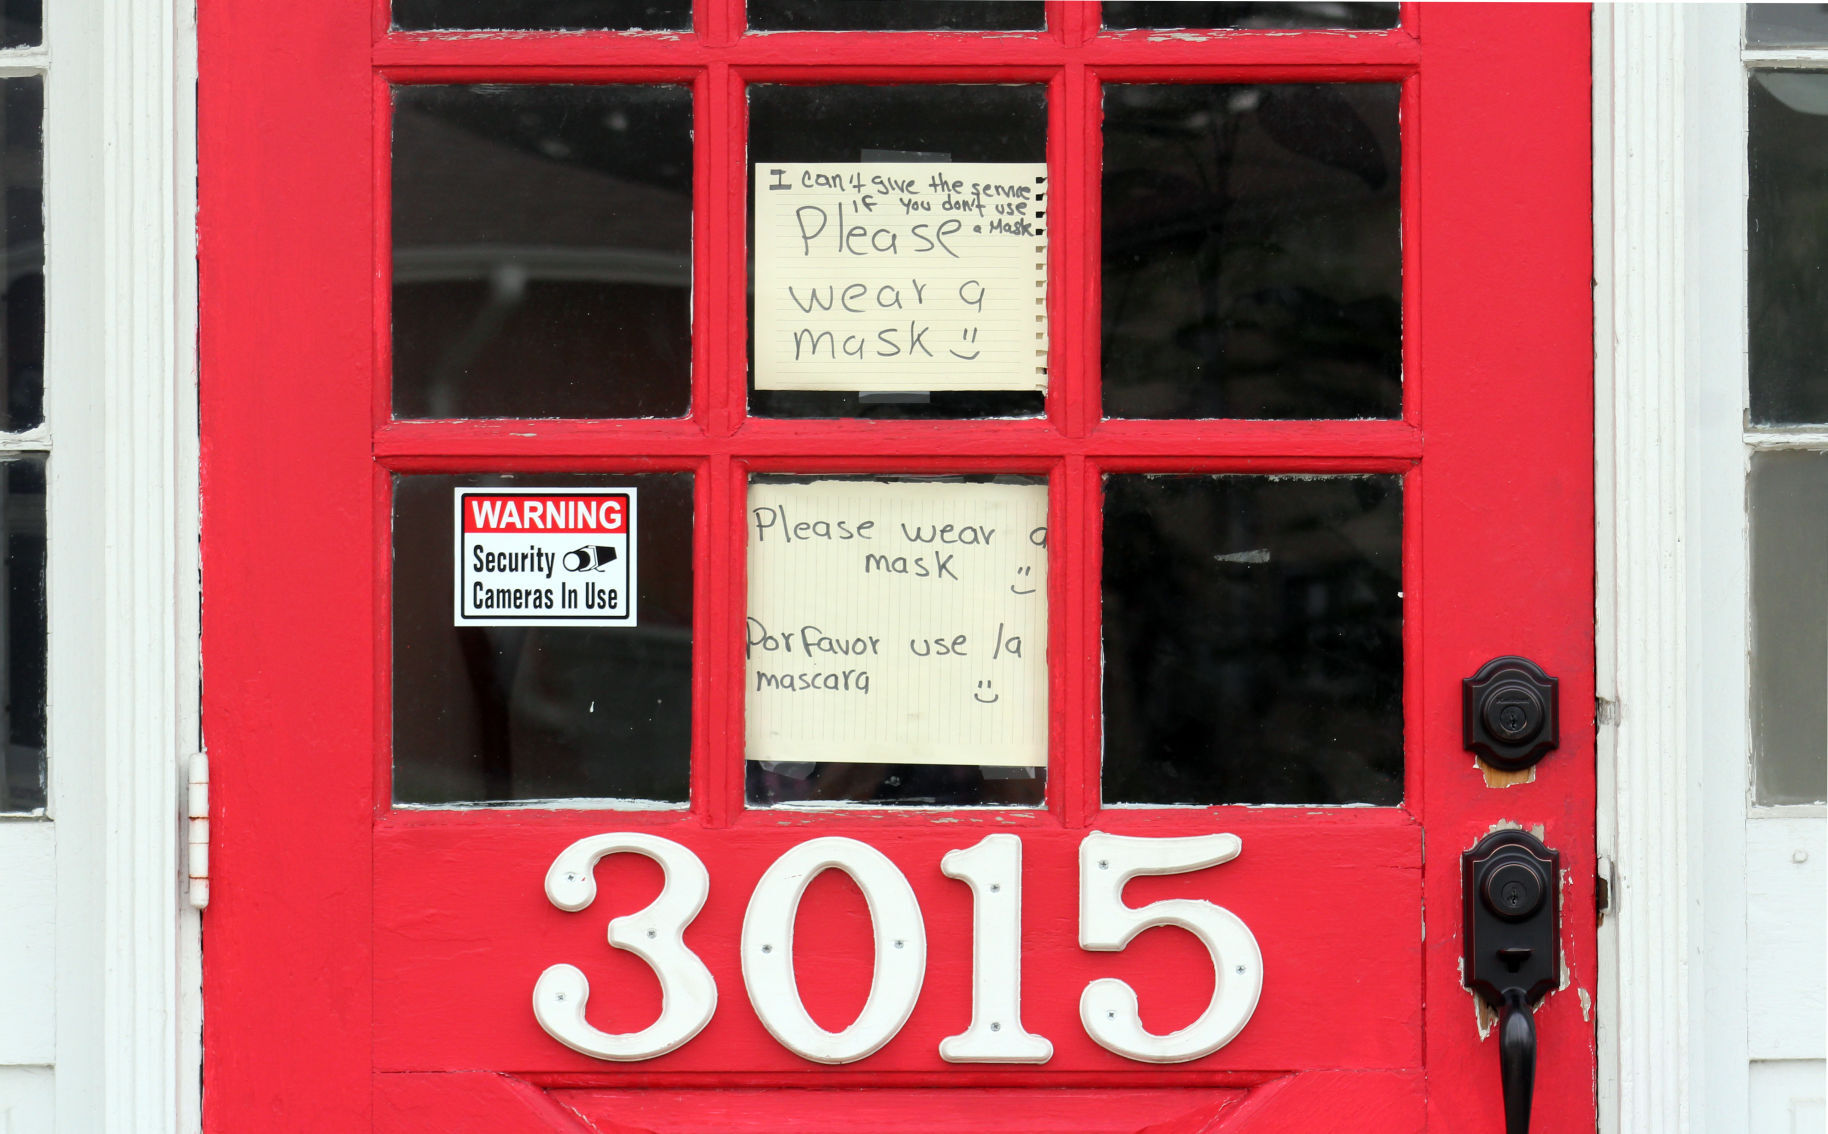 I can't give the service
if you don't use
a Mask
Please
wear a
mask
WARNING
Security
Cameras In Use
Please wear a
mask
Por favor use la
mascara
3015